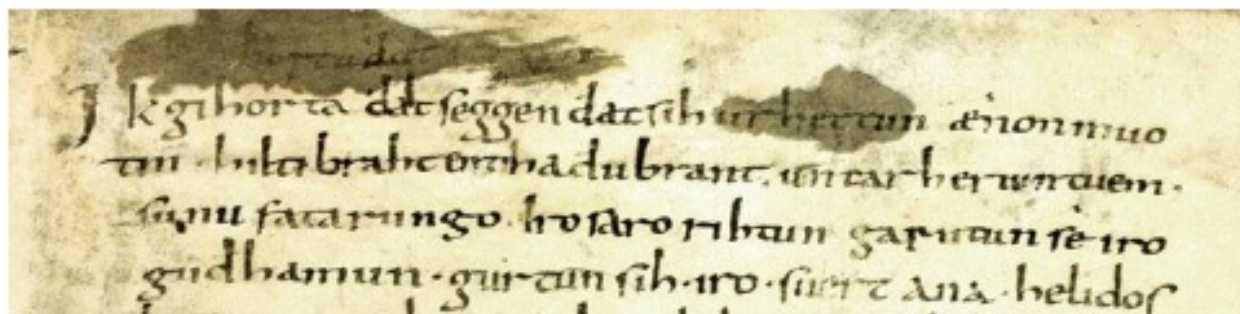 Ik gihorta đat seggen đat sih urhettun ænon muo
tin · hiltibraht enti hadubrant · untar heriun tuem ·
sunu fatarungo · iro saro rihtun garutun se iro
gudhamun · gurtun sih · iro · suert ana · helidos